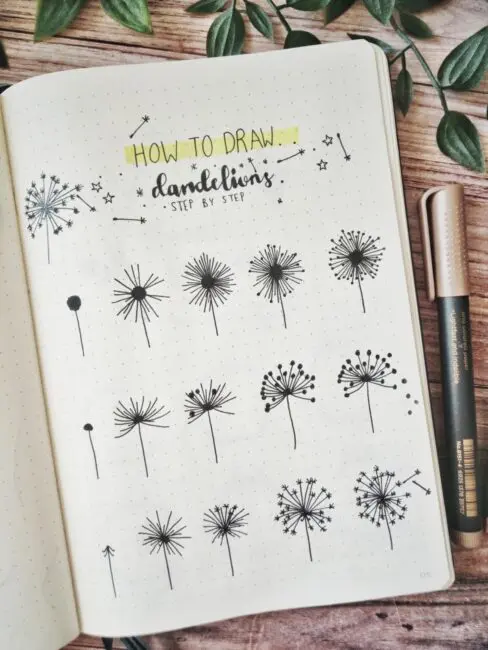 HOW TO DRAW
dandelions
STEP BY STEP